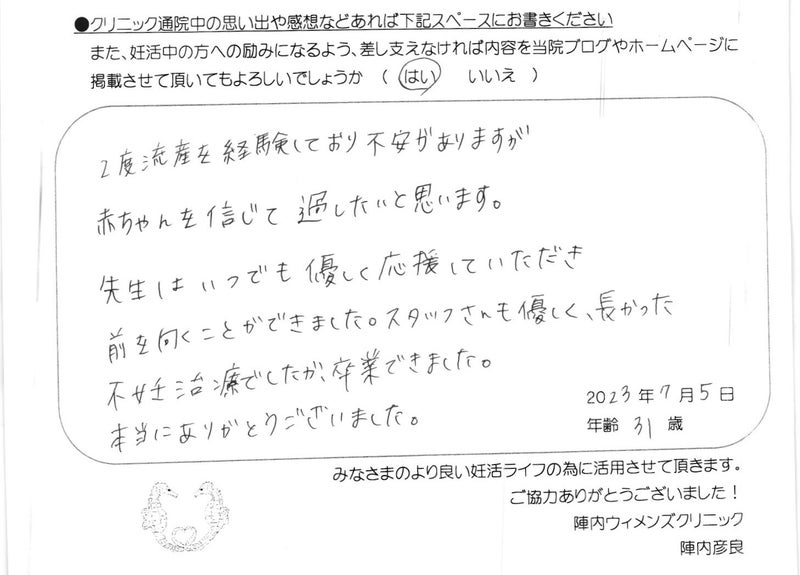 ●クリニック通院中の思い出や感想などあれば下記スペースにお書きください
また、妊活中の方への励みになるよう、差し支えなければ内容を当院ブログやホームページに
掲載させて頂いてもよろしいでしょうか （ はい　いいえ ）
2度流産を経験しており不安がありますが
赤ちゃんを信じて過したいと思います。
先生はいつでも優しく応援していただき
前を向くことができました。スタッフさんも優しく、長かった
不妊治療でしたが、卒業できました。
本当にありがとうございました。
2023年7月5日
年齢 31 歳
みなさまのより良い妊活ライフの為に活用させて頂きます。
ご協力ありがとうございました！
陣内ウィメンズクリニック
陣内彦良